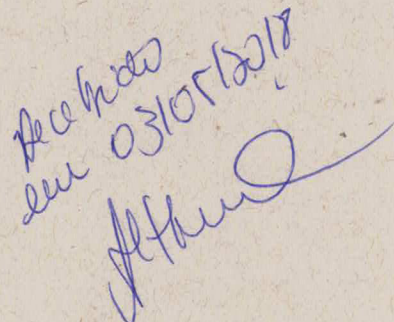 Recebido
em 03/05/2018